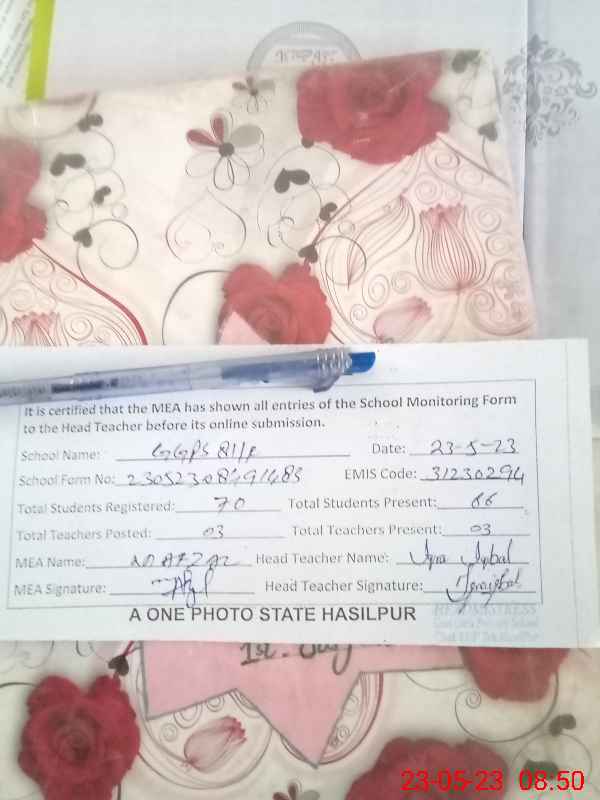 It is certified that the MEA has shown all entries of the School Monitoring Form
to the Head Teacher before its online submission.
School Name: GGPS 81/F Date: 23-5-23
School Form No: EMIS Code: 31230294
Total Students Registered: 70 Total Students Present: 66
Total Teachers Posted: 03 Total Teachers Present: 03
MEA Name: M AFZAL Head Teacher Name: Iqra Iqbal
MEA Signature: Afzal Head Teacher Signature: Iqraiqbal
A ONE PHOTO STATE HASILPUR
HEADMISTRESS
Primary School
1st.
23-05-23 08:50